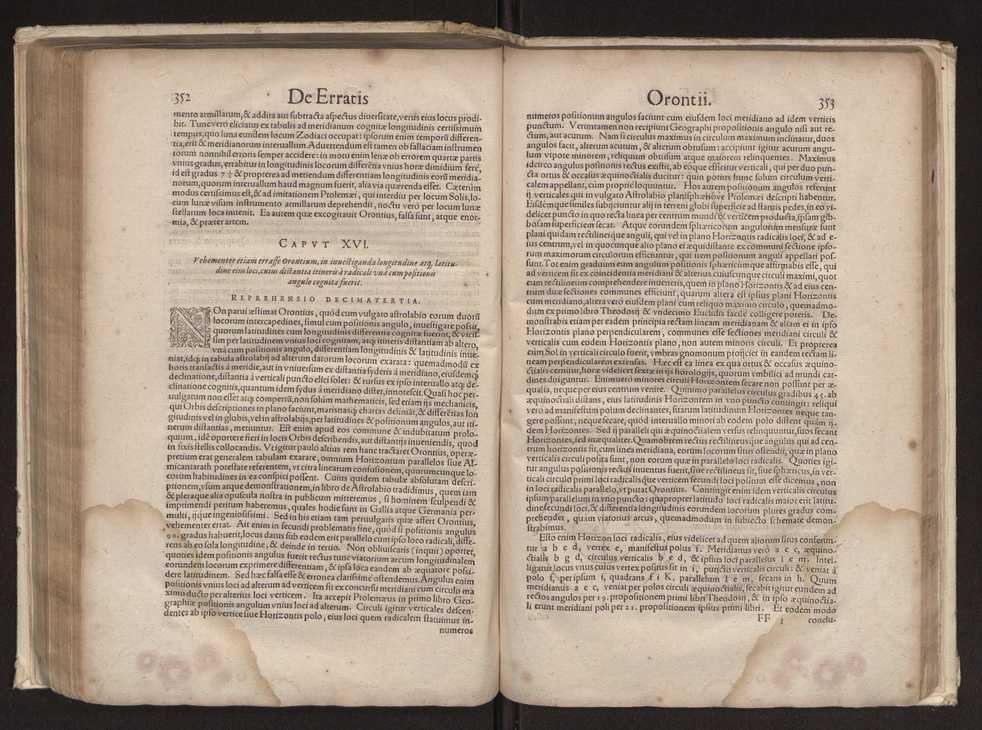 352
De Erratis
mento armillarum, & addita aut subtracta aspectus diuersitate, verus eius locus prodi-
bit. Tunc verò eliciatur ex tabulis ad meridianum cognitæ longitudinis certissimum
tempus, quo luna eundem locum Zodiaci occupat: ipsorum enim temporũ differen-
tia, erit & meridianorum interuallum. Aduertendum est tamen ob fallaciam instrumen
torum nonnihil erroris semper accidere: in motu enim lunæ ob errorem quartæ partis
vnius gradus, errabitur in longitudinis locorum differẽtia vnius horæ dimidium ferè,
id est gradus 7 ½ & propterea ad metiendum differentiam longitudinis eorũ meridia-
norum, quorum interuallum haud magnum fuerit, alia via quærenda esset. Cæterùm
modus certissimus est, & ad imitationem Ptolemæi, qui interdiu per locum Solis, lo-
cum lunæ visum instrumento armillarum deprehendit, noctu verò per locum lunæ
stellarum loca inuenit. Ea autem quæ excogitauit Orontius, falsa sunt, atque enor-
mia, & præter artem.
CAPVT XVI.
Vehementer etiam errasse Orontium, in inuestiganda longitudine atq, latitu-
dine eius loci, cuius distantia itineris à radicali vnà cum positionis
angulo cognita fuerit.
REPREHENSIO DECIMATERTIA.
NOn parui æstimat Orontius, quòd cum vulgato astrolabio eorum duorũ
locorum intercapedines, simul cum positionis angulo, inuestigare possit,
quorum latitudines cum longitudinis differentia cognitæ fuerint, & vicis-
sim per latitudinem vnius loci cognitam, atq; itineris distantiam ab altero,
vnà cum positionis angulo, differentiam longitudinis & latitudinis inue-
niat, idq; in tabula astrolabij ad alterum datorum locorum exarata: quemadmodũ ex
horis transactis à meridie, aut in vniuersum ex distantia syderis à meridiano, eiusdemq;
declinatione, distantia à verticali puncto elici solet: & rursus ex ipso interuallo atq; de-
clinatione cognitis, quantum idem sydus à meridiano distet, innotescit. Quasi hoc per-
uulgatum non esset atq; compertũ, non solùm mathematicis, sed etiam ijs mechanicis,
qui Orbis descriptiones in plano faciunt, marinasq́; chartas deliniãt, & differẽtias lon
gitudinis vel in globis, vel in astrolabijs, per latitudines & positionum angulos, aut iti-
nerum distantias, metiuntur. Est enim apud eos commune & indubitatum prolo-
quium, idẽ oportere fieri in locis Orbis describendis, aut distantijs inueniendis, quod
in fixis stellis collocandis. Vt igitur paulò altius rem hanc tractaret Orontius, operæ-
pretium erat generalem tabulam exarare, omnium Horizontum parallelos siue Al-
micantarath potestate referentem, vt citra linearum confusionem, quorumcunque lo-
corum habitudines in ea conspici possent. Cuius quidem tabulæ absolutam descri-
ptionem, vsum atque demonstrationem, in libro de Astrolabio tradidimus, quem iam
& pleraque alia opuscula nostra in publicum mitteremus, si hominem sculpendi &
imprimendi peritum haberemus, quales hodie sunt in Gallia atque Germania per-
multi, ijque ingeniosissimi. Sed in his etiam tam peruulgaris quæ asserit Orontius,
vehementer errat. Ait enim in secundi problematis fine, quòd si positionis angulus
90. gradus habuerit, locus datus sub eodem erit parallelo cum ipso loco radicali, diffe-
rens ab eo sola longitudine, & deinde in tertio. Non obliuiscaris (inquit) oportet,
quoties idem positionis angulus fuerit rectus tunc viatorium arcum longitudinalem
eorundem locorum exprimere differentiam, & ipsa loca eandem ab æquatore possi-
dere latitudinem. Sed hæc falsa esse & erronea clarissimè ostendemus. Angulus enim
positionis vnius loci ad alterum ad verticem sit ex concursu meridiani cum circulo ma
ximo ducto per alterius loci verticem. Ita accepit Ptolemæus in primo libro Geo-
graphiæ positionis angulum vnius loci ad alterum. Circuli igitur verticales descen-
dentes ab ipso vertice siue Horizontis polo, eius loci quem radicalem statuimus in-
numeros
Orontii.
353
numeros positionum angulos faciunt cum eiusdem loci meridiano ad idem verticis
punctum. Veruntamen non recipiunt Geographi propositionis angulo nisi aut re-
ctum, aut acutum. Nam si circulus maximus in circulum maximum inclinatur, duos
angulos facit, alterum acutum, & alterum obtusum: accipiunt igitur acutum angu-
lum vtpote minorem, reliquum obtusum atque maiorem relinquentes. Maximus
idcirco angulus positionis rectus existit, ab eoque efficitur verticali, qui per duo pun-
cta ortus & occasus æquinoctialis ducitur: quin potius hunc solum circulum verti-
calem appellant, cùm propriè loquuntur. Hos autem positionum angulos referunt
ij verticales qui in vulgato Astrolabio planisphærióve Ptolemæi descripti habentur.
Eisdémque similes subijciuntur alij in terreni globi superficie ad stantis pedes, in eo vi-
delicet puncto in quo recta linea per centrum mundi & verticem producta, ipsam glo-
bosam superficiem secat. Atque eorundem sphæricorum angulorum mensuræ sunt
plani quidam rectilineíque anguli, qui vel in plano Horizontis radicalis loci, & ad e-
ius centrum, vel in quocunque alio plano ei æquidistante ex communi sectione ipso-
rum maximorum circulorum efficiuntur, qui item positionum anguli appellari pos-
sunt. Tot enim graduum eum angulum positionis sphæricum que affirmabis esse, qui
ad verticem fit ex coincidentia meridiani & alterius cuiuscunque circuli maximi, quot
eum rectilineum comprehendere inueneris, quem in plano Horizontis & ad eius cen-
trum duæ sectiones communes efficiunt, quarum altera est ipsius plani Horizontis
cum meridiano, altera verò eiusdem plani cum reliquo maximo circulo, quemadmo-
dum ex primo libro Theodosij & vndecimo Euclidis facilè colligere poteris. De-
monstrabis etiam per eadem principia rectam lineam meridianam & aliam ei in ipso
Horizontis plano perpendicularem, communes esse sectiones meridiani circuli &
verticalis cum eodem Horizontis plano, non autem minoris circuli. Et propterea
cùm Sol in verticali circulo fuerit, vmbras gnomonum projcici in eandem rectam li-
neam perpendicularem extensas. Hæc est ea linea ex qua ortus & occasus æquino-
ctialis cernitur, horæ videlicet sextæ in ijs horologijs, quorum vmbilici ad mundi car-
dines diriguntur. Enimuero minores circuli Horizontem secare non possunt per æ-
qualia, neque per eius centrum venire. Quinimo parallelus circulus gradibus 45. ab
æquinoctiali distans, eius latitudinis Horizontem in vno puncto contingit: reliqui
verò ad manifestum polum declinantes, sitarum latitudinum Horizontes neque tan-
gere possunt, neque secare, quòd interuallo minori ab eodem polo distent quàm ij-
dem Horizontes. Sed ij paralleli qui æquinoctialem versus relinquuntur, suos secant
Horizontes, sed inæqualiter. Quamobrem rectus rectilineusque angulus qui ad cen-
trum horizontis fit, cum linea meridiana, eorum locorum situs ostendit, quæ in plano
verticalis circuli posita sunt, non eorum quæ in parallelo loci radicalis. Quoties igi-
tur angulus positionis rectus inuentus fuerit, siue rectilineus sit, siue sphæricus, in ver-
ticali circulo primi loci radicalisque verticem secundi loci positum esse dicemus, non
in loci radicalis parallelo, vt putat Orontius. Contingit enim idem verticalis circulus
ipsum parallelum in vno puncto: quapropter latitudo loci radicalis maior erit latitu-
dine secundi loci, & differentia longitudinis eorundem locorum plures gradus com-
prehendet, quàm viatorius arcus, quemadmodum in subiecto schemate demon-
strabimus.
Esto enim Horizon loci radicalis, eius videlicet ad quem aliorum situs conferun-
tur a b e d, vertex e, manifestus polus f. Meridianus verò a e c, æquino-
ctialis b g d, circulus verticalis b e d, & ipsius loci parallelus i e m. Intel-
ligatur locus vnus cuius vertex positus sit in i, puncto verticalis circuli: & veniat à
polo f, per ipsum i, quadrans f i K, parallelum l e m, secans in h. Quum
meridianus a e c, veniat per polos circuli æquinoctialis, secabit igitur eundem ad
rectos angulos per 19. propositionem primi libri Theodosij, & in ipso æquinoctia-
li erunt meridiani poli per 21. propositionem ipsius primi libri. Et eodem modo
FF 1 conclu-